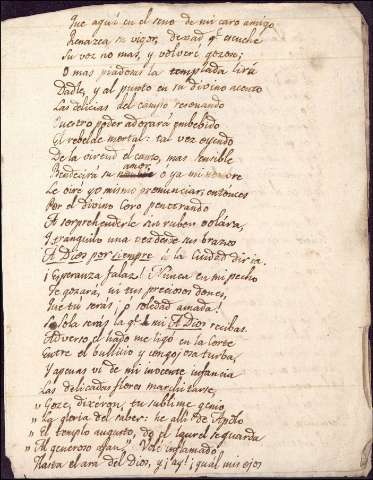 Que aquí en el seno de mi caro amigo
Renazca su vigor, dexad q.e escuche
Su voz no mas, y volveré gozoso;
O mas piadosas la templada lira
Dadle, y al punto en su divino acento
Las delicias del campo resonando
Vuestro poder adorará embebido
El rebelde mortal: tal vez oyendo
De la virtud el canto, mas sensible
amor,
Bendecirá su nombre o ya mi nombre
Le oiré yo mismo pronunciar, entónces
Por el divino Coro penetrando
A sorprehenderle sin rubor volára,
Y tranquilo una vez desde sus brazos
A Dios por siempre á la Ciudad diria.
¡Esperanza falaz! Nunca en mi pecho
Te gozará, ni tus preciosos dones,
Que tú serás ¡ó soledad amada!
La sola serás la q.e mi A Dios recibas.
Adverso el hado me ligó en la Corte
Entre el bullicio y congoxosa turba,
Y apenas vi de mi inocente infancia
Las delicadas flores marchitarse,
" Goze, dixéron, tu sublime genio
" La gloria del saber: he allí de Apolo
" El templo augusto, do el laurel se guarda
" Al generoso afan," Volé inflamado
Hasta el ara del Dios, y ¡ay! ¡qual mis ojos